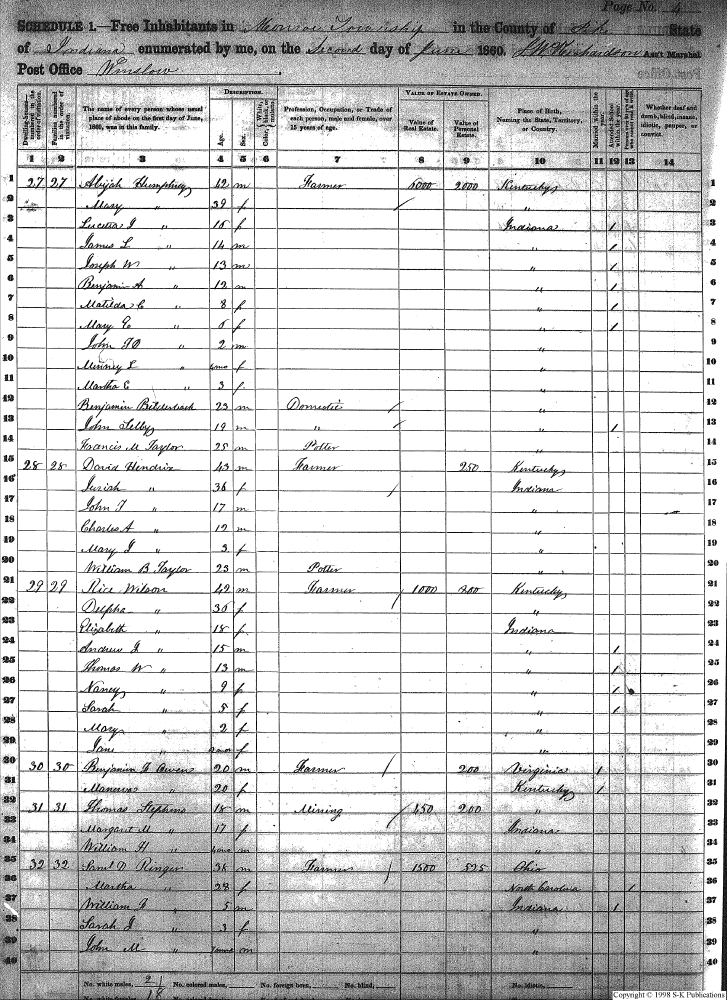 Page No. 4
SCHEDULE 1.—Free Inhabitants in Monroe Township in the County of Pike State
of Indiana enumerated by me, on the Second day of June 1860. Ass't Marshal
Post Office Winslow
DESCRIPTION. VALUE OF ESTATE OWNED.
Dwelling-houses—numbered in the order of visitation.
Families numbered in the order of visitation.
The name of every person whose usual place of abode on the first day of June, 1860, was in this family.
Age.
Sex.
Color, {White, black, or mulatto.
Profession, Occupation, or Trade of each person, male and female, over 15 years of age.
Value of Real Estate.
Value of Personal Estate.
Place of Birth, Naming the State, Territory, or Country.
Married within the year.
Attended School within the year.
Whether deaf and dumb, blind, insane, idiotic, pauper, or convict.
1 2 3 4 5 6 7 8 9 10 11 12 13 14
1 27 27 Abijah Humphrey 42 m Farmer 2000 Kentucky 1
2 Mary " 39 f " 2
3 " f Indiana 1 3
4 James L " 14 m " 1 4
5 Joseph W " 13 m " 1 5
6 Benjamin A " 12 m " 1 6
7 Matilda C " 8 f " 1 7
8 Mary E " 6 f " 1 8
9 John " 2 m " 9
10 L " f " 10
11 Martha E " 3 f " 11
12 Benjamin 23 m Domestic / " 12
13 John Selby 19 m " / " 1 13
14 Francis M Taylor 25 m Potter " 14
15 28 28 David Hendrix 43 m Farmer 250 Kentucky 15
16 " 36 f / Indiana 16
17 John " 17 m " 17
18 Charles A " 12 m " 18
19 Mary J " 3 f " 19
20 William B Taylor 23 m Potter " 20
21 29 29 Rice Wilson 42 m Farmer / 1000 200 Kentucky 21
22 Delpha " f / " 22
23 Elizabeth " 18 f Indiana 23
24 Andrew J " 15 m " 1 24
25 Thomas W " 13 m " 1 25
26 Nancy " 9 f " 1 26
27 Sarah " 5 f " 1 27
28 Mary " 2 f " 28
29 Jane " f " 29
30 30 30 Benjamin F Owens 20 m Farmer / 200 Virginia 1 30
31 " 20 f Kentucky 1 31
32 31 31 Thomas Stephens 18 m Mining / 450 200 " 32
33 Margaret M " 17 f Indiana 33
34 William H " m " 34
35 32 32 Saml D Ringer 36 m Farmer / 1500 525 Ohio 35
36 Martha " 28 f North Carolina 1 36
37 William " 5 m Indiana 1 37
38 Sarah J " 3 f " 38
39 John M " m " 39
40 40
No. white males, 21 No. colored males, No. foreign born, No. blind, No. idiotic,
Copyright © 1998 S-K Publications